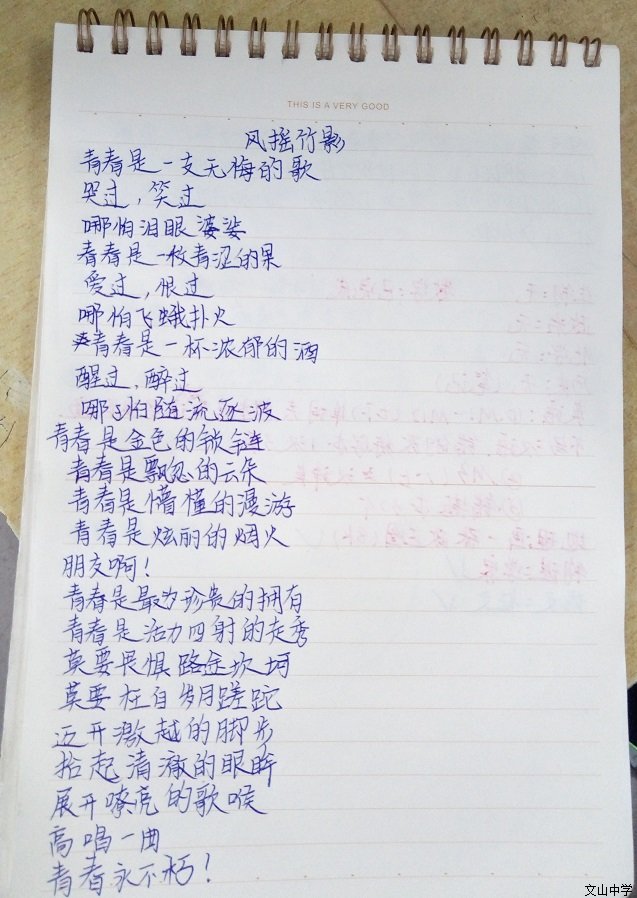 THIS IS A VERY GOOD
风摇竹影
青春是一支无悔的歌
哭过,笑过
哪怕泪眼婆娑
青春是一枚青涩的果
爱过,恨过
哪怕飞蛾扑火
青春是一杯浓郁的酒
醒过,醉过
哪怕随流逐波
青春是金色的锁链
青春是飘忽的云朵
青春是懵懂的漫游
青春是炫丽的烟火
朋友啊!
青春是最为珍贵的拥有
青春是活力四射的走秀
莫要畏惧路途坎坷
莫要在白岁月蹉跎
迈开激越的脚步
拾起清澈的眼眸
展开嘹亮的歌喉
高唱一曲
青春永不朽!
文山中学